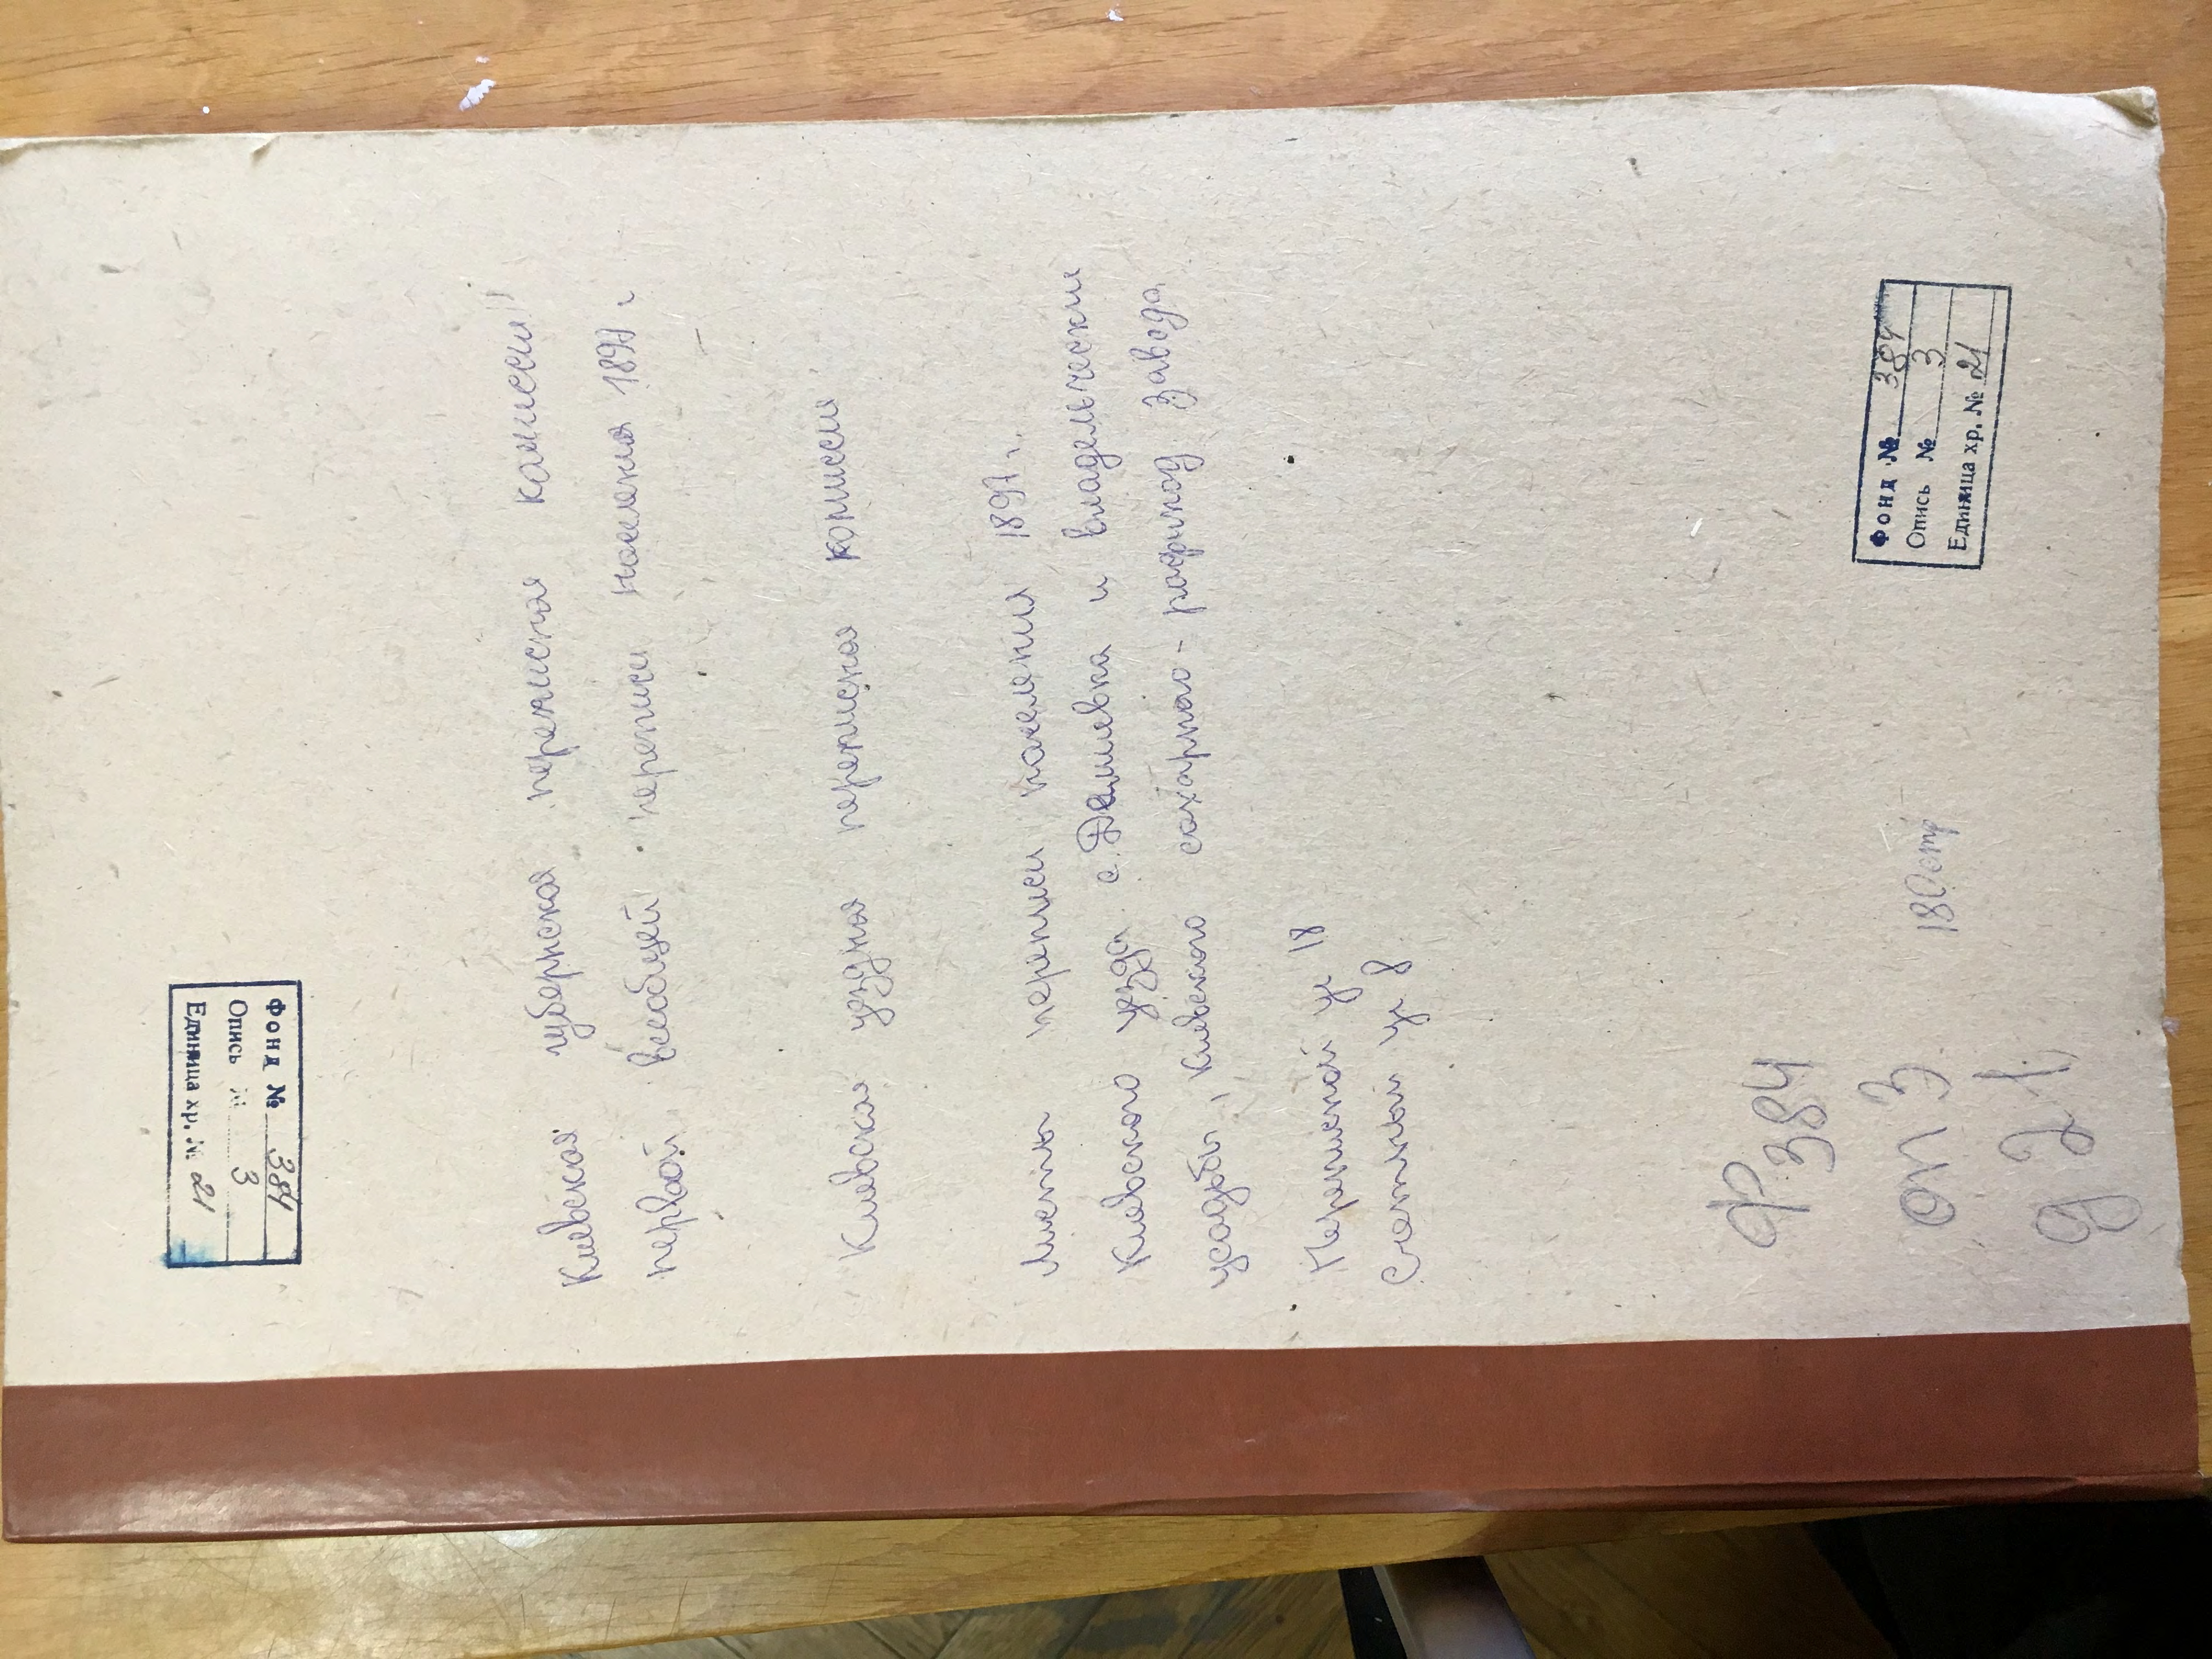 Фонд № 384
Опись № 3
Единица хр. № 21
Киевская губернская переписная комиссии
первой всеобщей переписи населения 1897 г
Киевская уездная переписная комиссии
Листы переписи населения 1897 г.
Киевского уезда с. Демиевка и владельчески
усадьбы, Киевского сахарно-рафинад завода
Переписной уч 18
Счетный уч 8.
Фонд № 384
Опись № 3
Единица хр. № 21
Ф 384
оп 3
д 21
180 стр